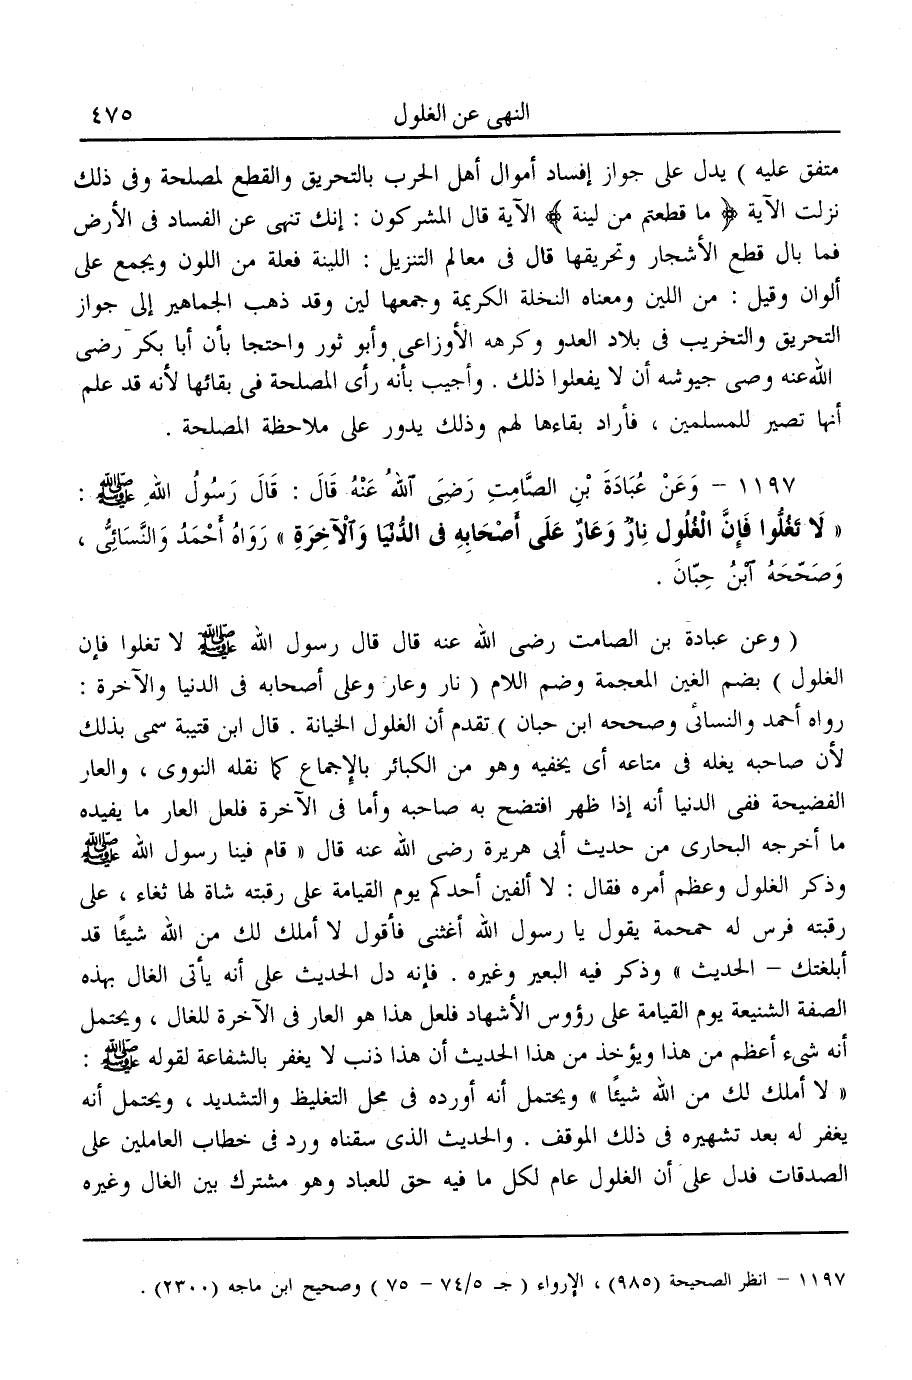 النهى عن الغلول ٤٧٥
متفق عليه ) يدل على جواز إفساد أموال أهل الحرب بالتحريق والقطع لمصلحة وفى ذلك
نزلت الآية ﴿ ما قطعتم من لينة ﴾ الآية قال المشركون : إنك تنهى عن الفساد فى الأرض
فما بال قطع الأشجار وتحريقها قال فى معالم التنزيل : اللينة فعلة من اللون ويجمع على
ألوان وقيل : من اللين ومعناه النخلة الكريمة وجمعها لين وقد ذهب الجماهير إلى جواز
التحريق والتخريب فى بلاد العدو وكرهه الأوزاعى وأبو ثور واحتجا بأن أبا بكر رضى
الله عنه وصى جيوشه أن لا يفعلوا ذلك . وأجيب بأنه رأى المصلحة فى بقائها لأنه قد علم
أنها تصير للمسلمين ، فأراد بقاءها لهم وذلك يدور على ملاحظة المصلحة .
١١٩٧ – وَعَنْ عُبَادَةَ بْنِ الصَّامِتِ رَضِيَ ٱللهُ عَنْهُ قَالَ : قَالَ رَسُولُ اللهِ ﷺ :
« لَا تَغُلُّوا فَإِنَّ الْغُلُول نِارٌ وَعَارٌ عَلَى أَصْحَابِهِ فى الدُّنْيَا وَٱلْآخِرَةِ » رَوَاهُ أَحْمَدُ وَالنَّسَائِىُّ ،
وَصَحَّحَهُ ٱبْنُ حِبّانَ .
( وعن عبادة بن الصامت رضى الله عنه قال قال رسول الله ﷺ لا تغلوا فإن
الغلول ) بضم الغين المعجمة وضم اللام ( نار وعار وعلى أصحابه فى الدنيا والآخرة :
رواه أحمد والنسائى وصححه ابن حبان ) تقدم أن الغلول الخيانة . قال ابن قتيبة سمى بذلك
لأن صاحبه يغله فى متاعه أى يخفيه وهو من الكبائر بالإجماع كما نقله النووى ، والعار
الفضيحة ففى الدنيا أنه إذا ظهر افتضح به صاحبه وأما فى الآخرة فلعل العار ما يفيده
ما أخرجه البخارى من حديث أبى هريرة رضى الله عنه قال « قام فينا رسول الله ﷺ
وذكر الغلول وعظم أمره فقال : لا ألفين أحدكم يوم القيامة على رقبته شاة لها ثغاء ، على
رقبته فرس له حمحمة يقول يا رسول الله أغثنى فأقول لا أملك لك من الله شيئًا قد
أبلغتك – الحديث » وذكر فيه البعير وغيره . فإنه دل الحديث على أنه يأتى الغال بهذه
الصفة الشنيعة يوم القيامة على رؤوس الأشهاد فلعل هذا هو العار فى الآخرة للغال ، ويحتمل
أنه شىء أعظم من هذا ويؤخذ من هذا الحديث أن هذا ذنب لا يغفر بالشفاعة لقوله ﷺ :
« لا أملك لك من الله شيئًا » ويحتمل أنه أورده فى محل التغليظ والتشديد ، ويحتمل أنه
يغفر له بعد تشهيره فى ذلك الموقف . والحديث الذى سقناه ورد فى خطاب العاملين على
الصدقات فدل على أن الغلول عام لكل ما فيه حق للعباد وهو مشترك بين الغال وغيره
١١٩٧ – انظر الصحيحة (٩٨٥) ، الإرواء ( جـ ٧٤/٥ – ٧٥ ) وصحيح ابن ماجه (٢٣٠٠) .